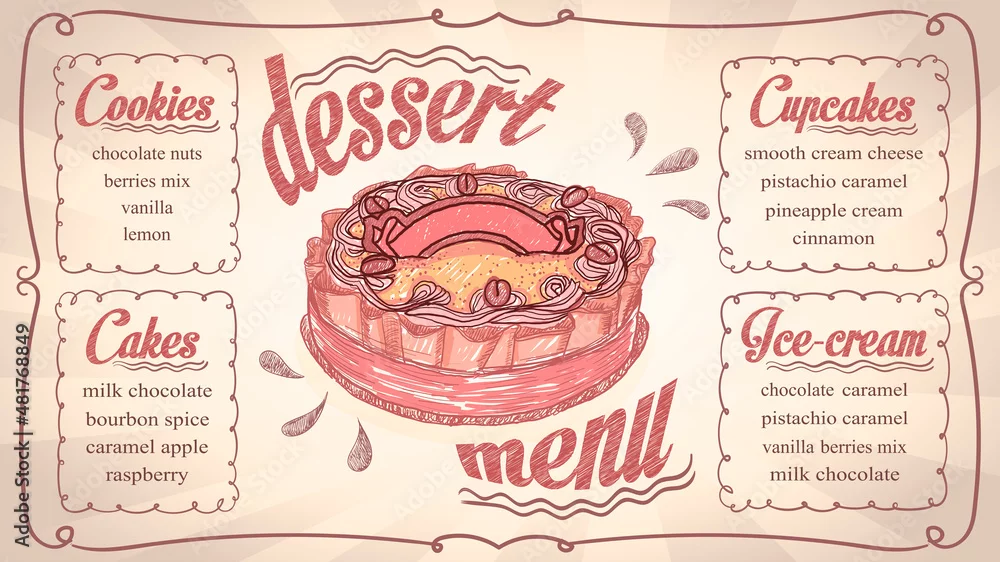 dessert
menu
Cookies
chocolate nuts
berries mix
vanilla
lemon
Cakes
milk chocolate
bourbon spice
caramel apple
raspberry
Cupcakes
smooth cream cheese
pistachio caramel
pineapple cream
cinnamon
Ice-cream
chocolate caramel
pistachio caramel
vanilla berries mix
milk chocolate
Adobe Stock | #481768849